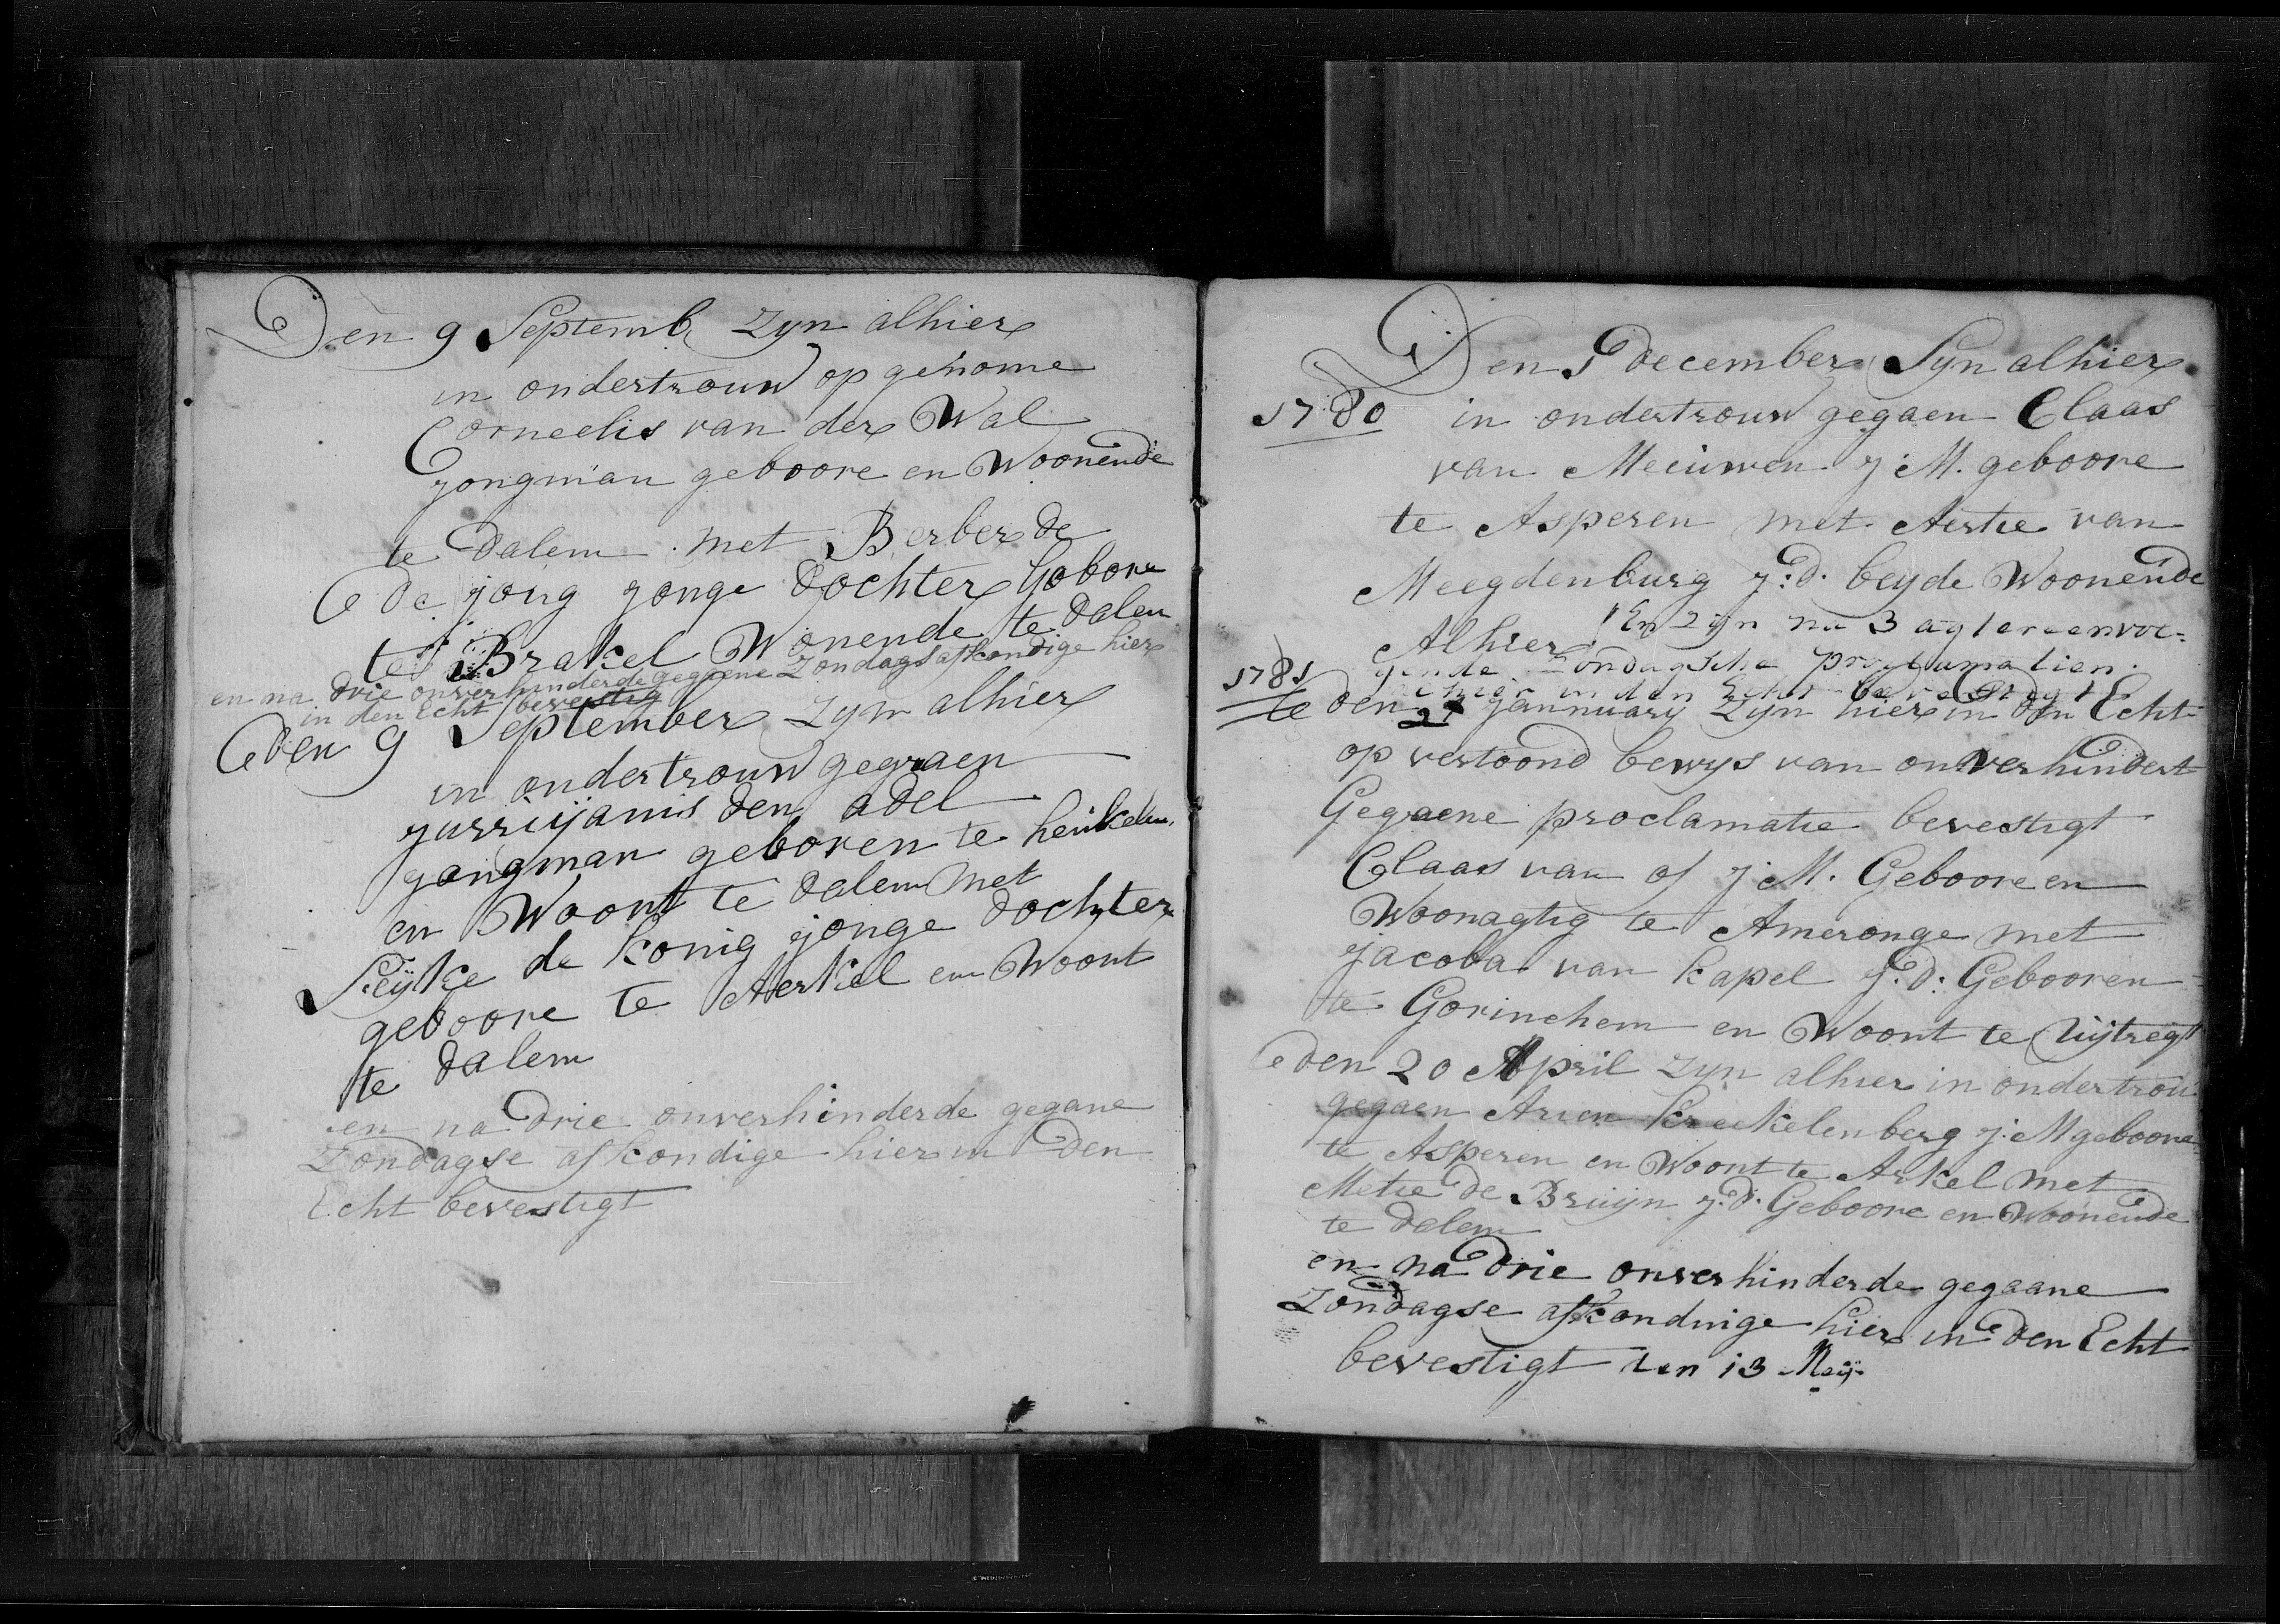 Den 9 Septemb zyn alhier
in ondertrouw op genome
Corneelis van der Wal
jongman geboore en Woonende
te dalem met Berber de
de jong jonge dochter gobore
te Brakel Wonende te dalem
en na drie onverhinderde gegaene Zondags afkondige hier
in den Echt bevestig
den 9 September zyn alhier
in ondertrouw gegaen
jurriyanis den adel
jongman geboren te heukelum
en Woont te dalem met
Seijke de konig jonge dochter
geboore te Aerkel en Woont
te dalem
en na drie onverhinderde gegane
Zondagse afkondige hier in den
Echt bevestigt
Den 1 december Syn alhier
1780 in ondertrouw gegaen Claas
van Meeuwen j M. geboore
te Asperen met Aertie van
Meegdenburg j:d. beyde Woonende
Alhier En zijn na 3 agtereenvol=
gende Zondagsche proclamatien
alhier in den Echt bevestigt
1781
den 21 jannuary zyn hier in den Echt
op vertoond bewys van onverhindert
Gegaene proclamatie bevestigt
Claas van of j M. Geboore en
Woonagtig te Ameronge met
jacoba van kapel j:d: Gebooren
te Gorinchem en Woont te Uijtregt
den 20 April zyn alhier in ondertrou
gegaen Arien kreekelenberg j:M geboore
te Asperen en Woont te Arkel met
Metie de Bruijn j:d. Geboore en Woonende
te dalem
en na drie onverhinderde gegaane
Zondagse afkondinge hier in den Echt
bevestigt den 13 Meij